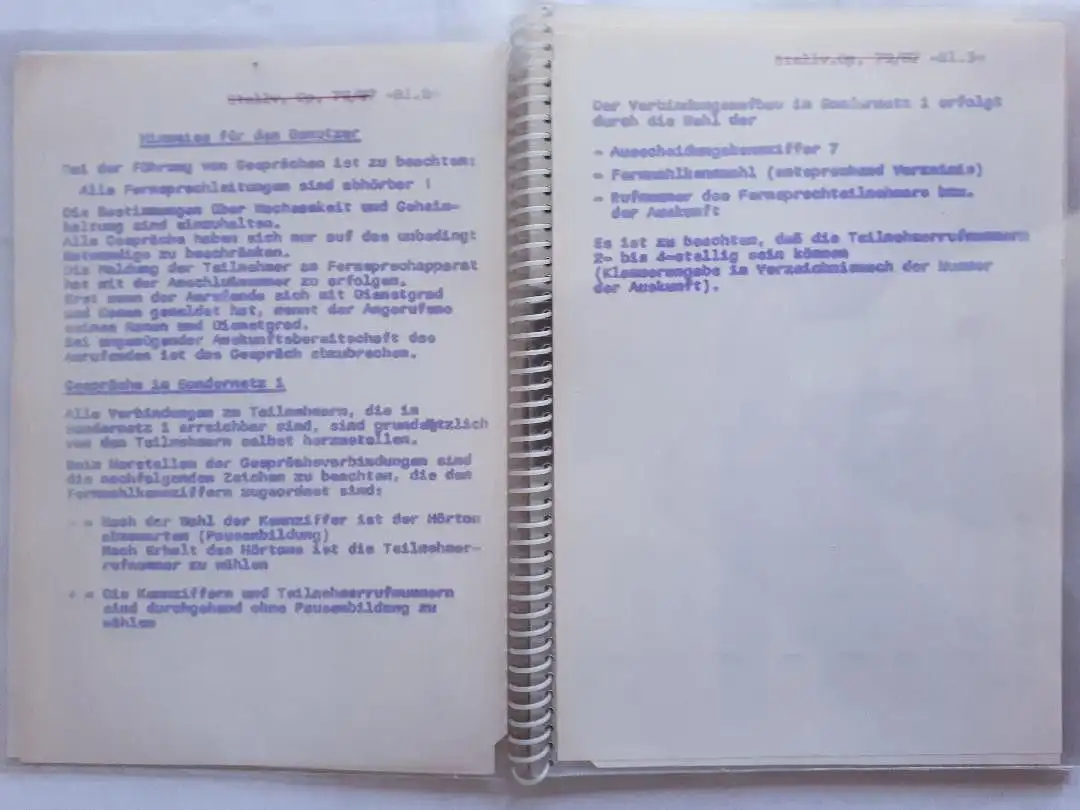 Stellv. Op. 79/87 -Bl.2-
Hinweise für den Benutzer
Bei der Führung von Gesprächen ist zu beachten:
Alle Fernsprechleitungen sind abhörbar !
Die Bestimmungen über Wachsamkeit und Geheim-
haltung sind einzuhalten.
Alle Gespräche haben sich nur auf das unbedingt
Notwendige zu beschränken.
Die Meldung der Teilnehmer am Fernsprechapparat
hat mit der Anschlußnummer zu erfolgen.
Erst wenn der Anrufende sich mit Dienstgrad
und Namen gemeldet hat, nennt der Angerufene
seinen Namen und Dienstgrad.
Bei ungenügender Auskunftsbereitschaft des
Anrufenden ist das Gespräch abzubrechen.
Gespräche im Sondernetz 1
Alle Verbindungen zu Teilnehmern, die im
Sondernetz 1 erreichbar sind, sind grundsätzlich
von den Teilnehmern selbst herzustellen.
Beim Herstellen der Gesprächsverbindungen sind
die nachfolgenden Zeichen zu beachten, die den
Fernwahlkennziffern zugeordnet sind:
- = Nach der Wahl der Kennziffer ist der Hörton
abzuwarten (Pausenbildung)
Nach Erhalt des Hörtons ist die Teilnehmer-
rufnummer zu wählen
+ = Die Kennziffern und Teilnehmerrufnummern
sind durchgehend ohne Pausenbildung zu
wählen
Stellv. Op. 79/87 -Bl.3-
Der Verbindungsaufbau im Sondernetz 1 erfolgt
durch die Wahl der
- Ausscheidungskennziffer 7
- Fernwahlkennzahl (entsprechend Verzeichnis)
- Rufnummer des Fernsprechteilnehmers bzw.
der Auskunft
Es ist zu beachten, daß die Teilnehmerrufnummern
2- bis 4-stellig sein können
(Klammerangabe im Verzeichnis nach der Nummer
der Auskunft).